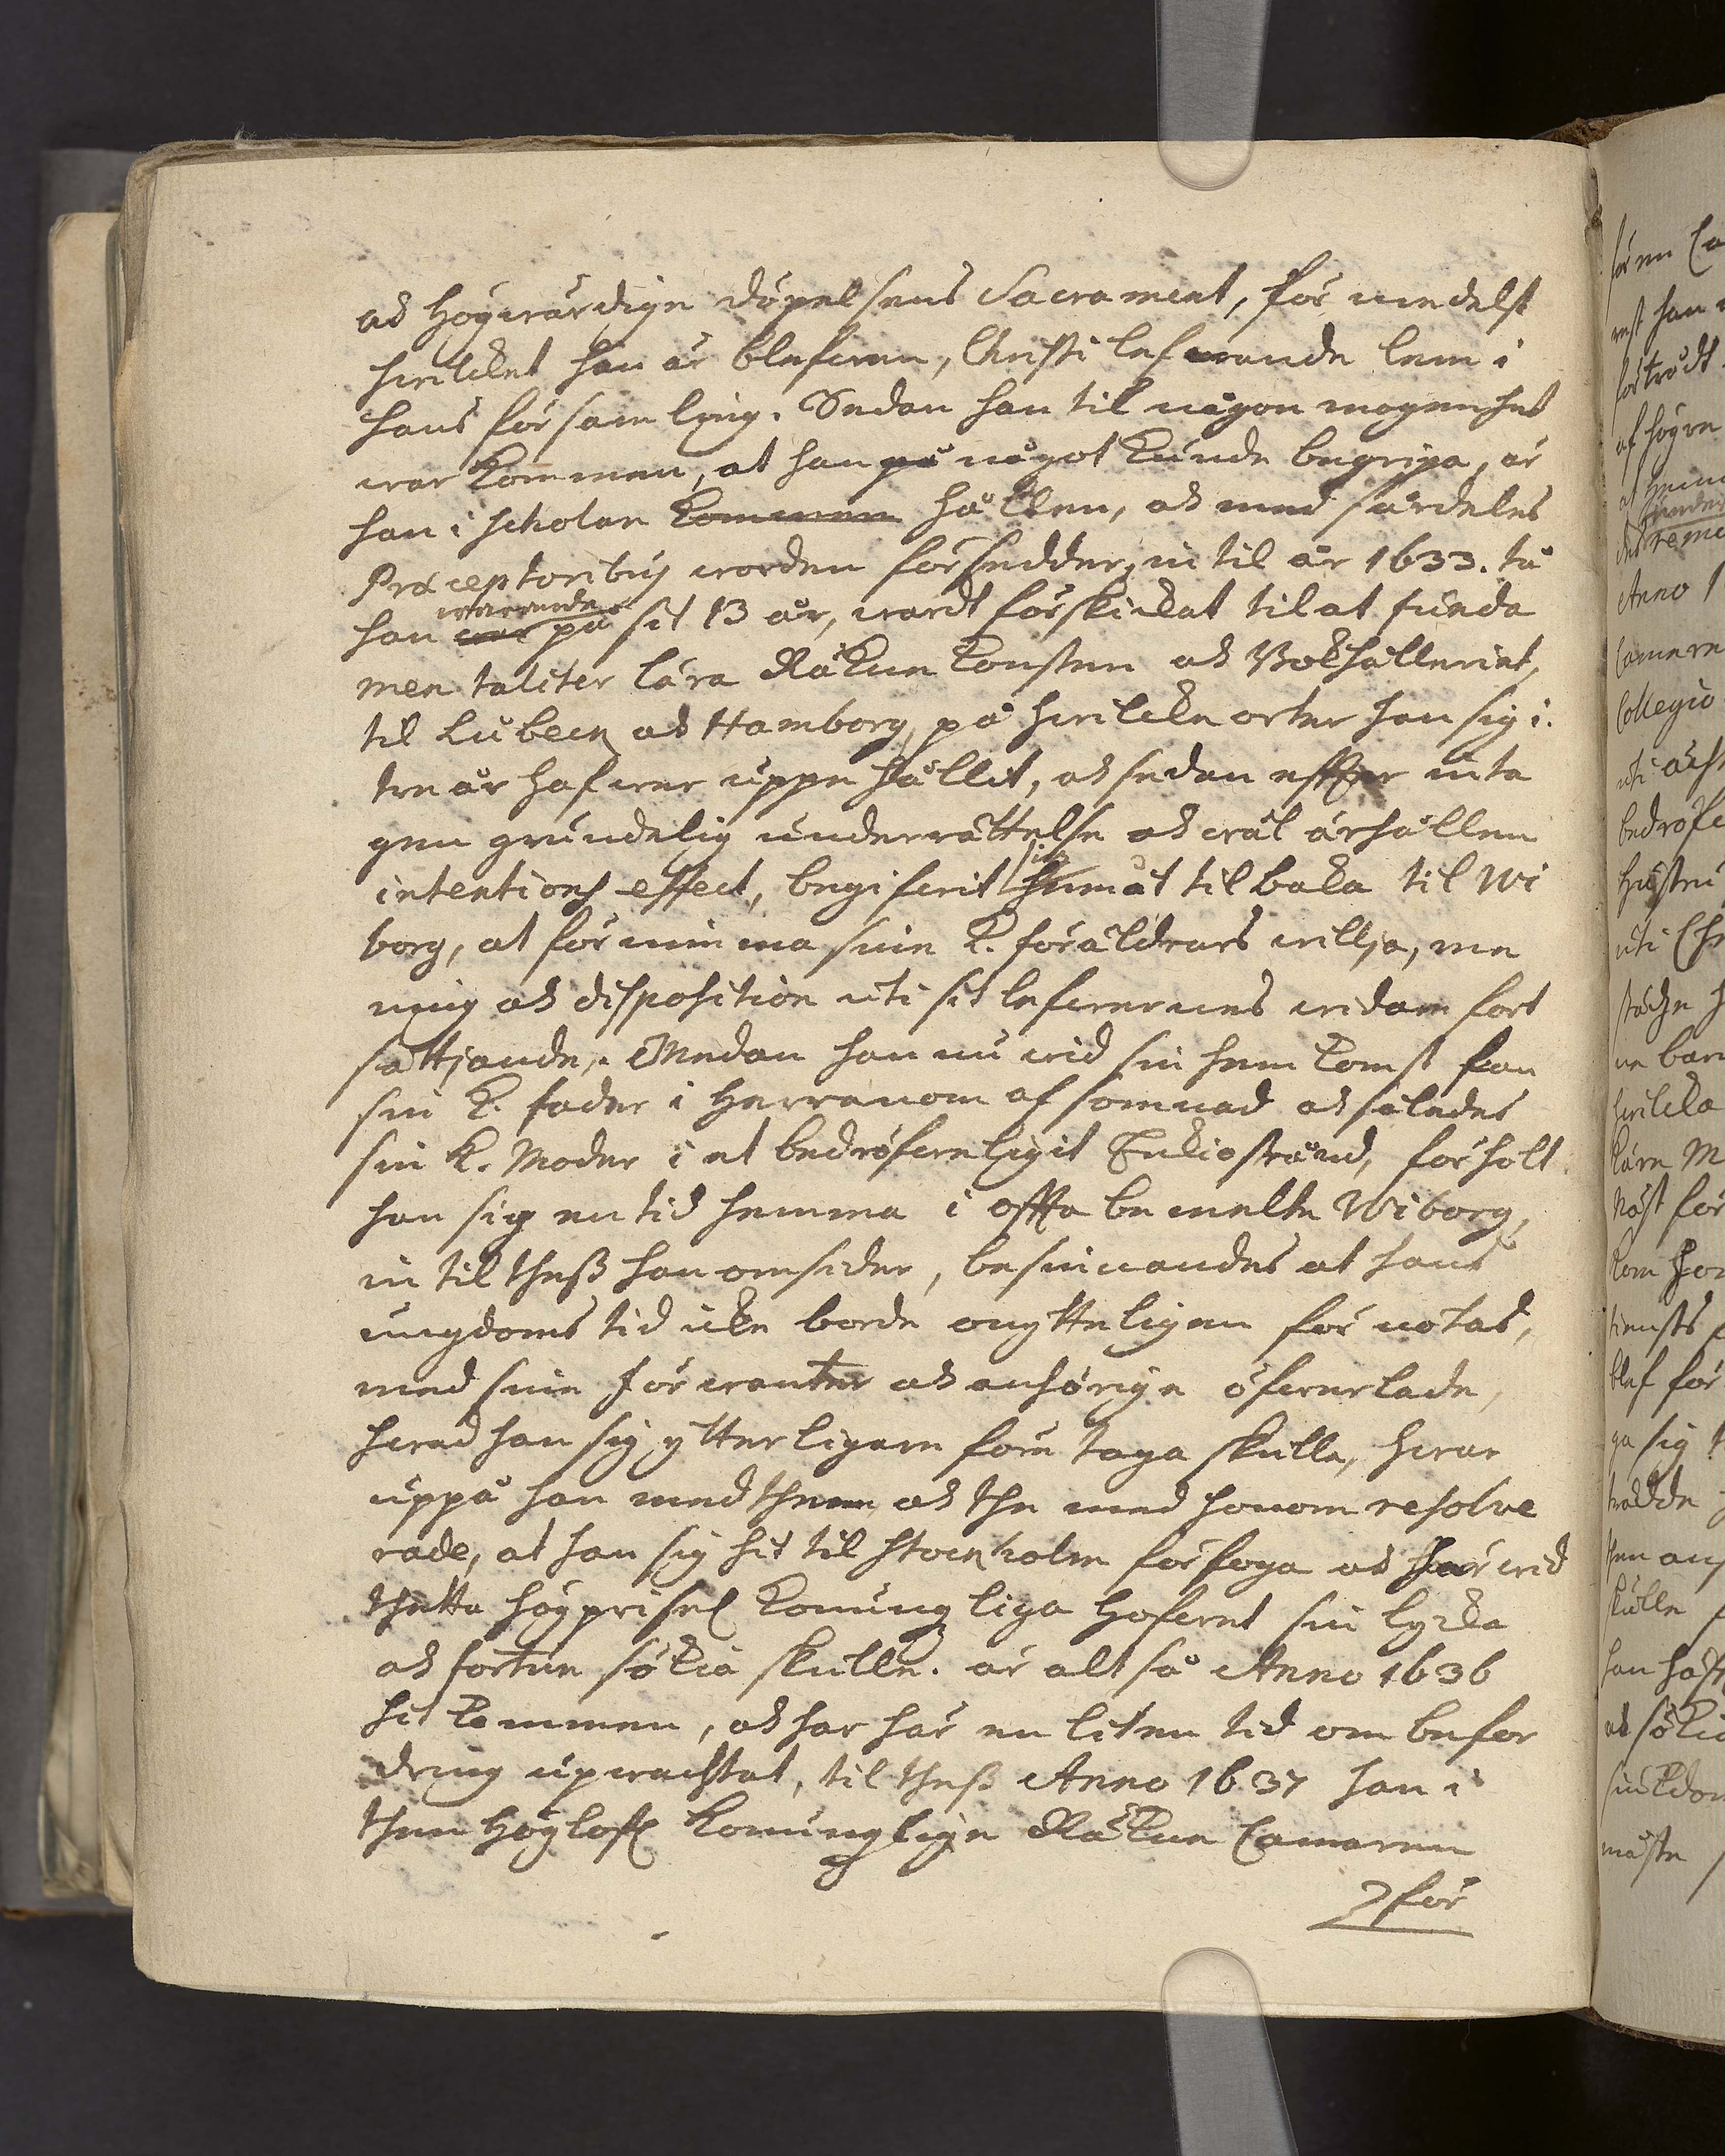 ock högwärdige döpelsens Sacrament, för medelst
hwilcket han är blefwen, Christi lefwande lem i
hans församling. Sedan han til någon mogenhet
war kommen, at han på något kunde begripa, är
han i scholan kommen hållen, ock med särdeles
Præceptoribus worden försedder, in til år 1633. tå
han war warande på sit 13 år, wardt förskickat til at funda
mentaliter lära Räkne konsten ock Bokhålleriet,
til Lübeck ock Hamborg, på hwilcke orter han sig i.
tre år hafwer uppe hållit, ock sedan effter inta
gen grundelig underrättelse ock wäl ärhållen
intentions effect, begifwit sig hemåt tilbaka til Wi
borg, at förnimma sine K. föräldrars willja, me
ning ock disposition uti sit lefwernes widare fort
sättjande. Medan han nu wid sin hemkomst fan
sin K. fader i Herranom afsomnad ock således
sin K. Moder i et bedröfweligit Enkiostånd, förholt
han sig en tid hemma i offta bemelte Wiborg,
in til theß han omsider, besinnandes at hans
ungdoms tid icke borde onytteligen förnötas,
med sine förwanter ock anhörige öfwerlade,
hwad han sig ytterligare före taga skulle, hwar
uppå han med them, ock the med honom resolve
rade, at han sig hit til Stockholm förfoga ock här wid
thetta högprisel Konungliga Hofwet sin lycka
ock fortun sökia skulle. är altså Anno 1636
hit kommen, ock har här en liten tid om befor
dring upwachtat, til theß Anno 1637 han i
then Höglofl Konunglige Räkne Cammaren
för